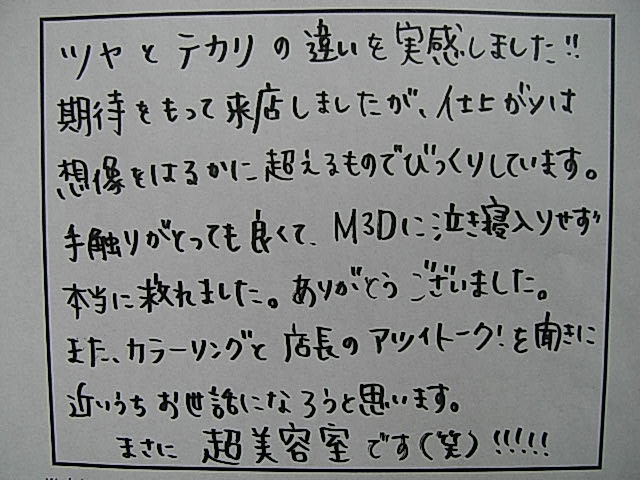 ツヤとテカリの違いを実感しました!!
期待をもって来店しましたが、仕上がりは
想像をはるかに超えるものでびっくりしています。
手触りがとっても良くて、M3Dに泣き寝入りせず
本当に救れました。ありがとうございました。
また、カラーリングと店長のアツイトーク!を聞きに
近いうちお世話になろうと思います。
まさに 超美容室です(笑)!!!!!